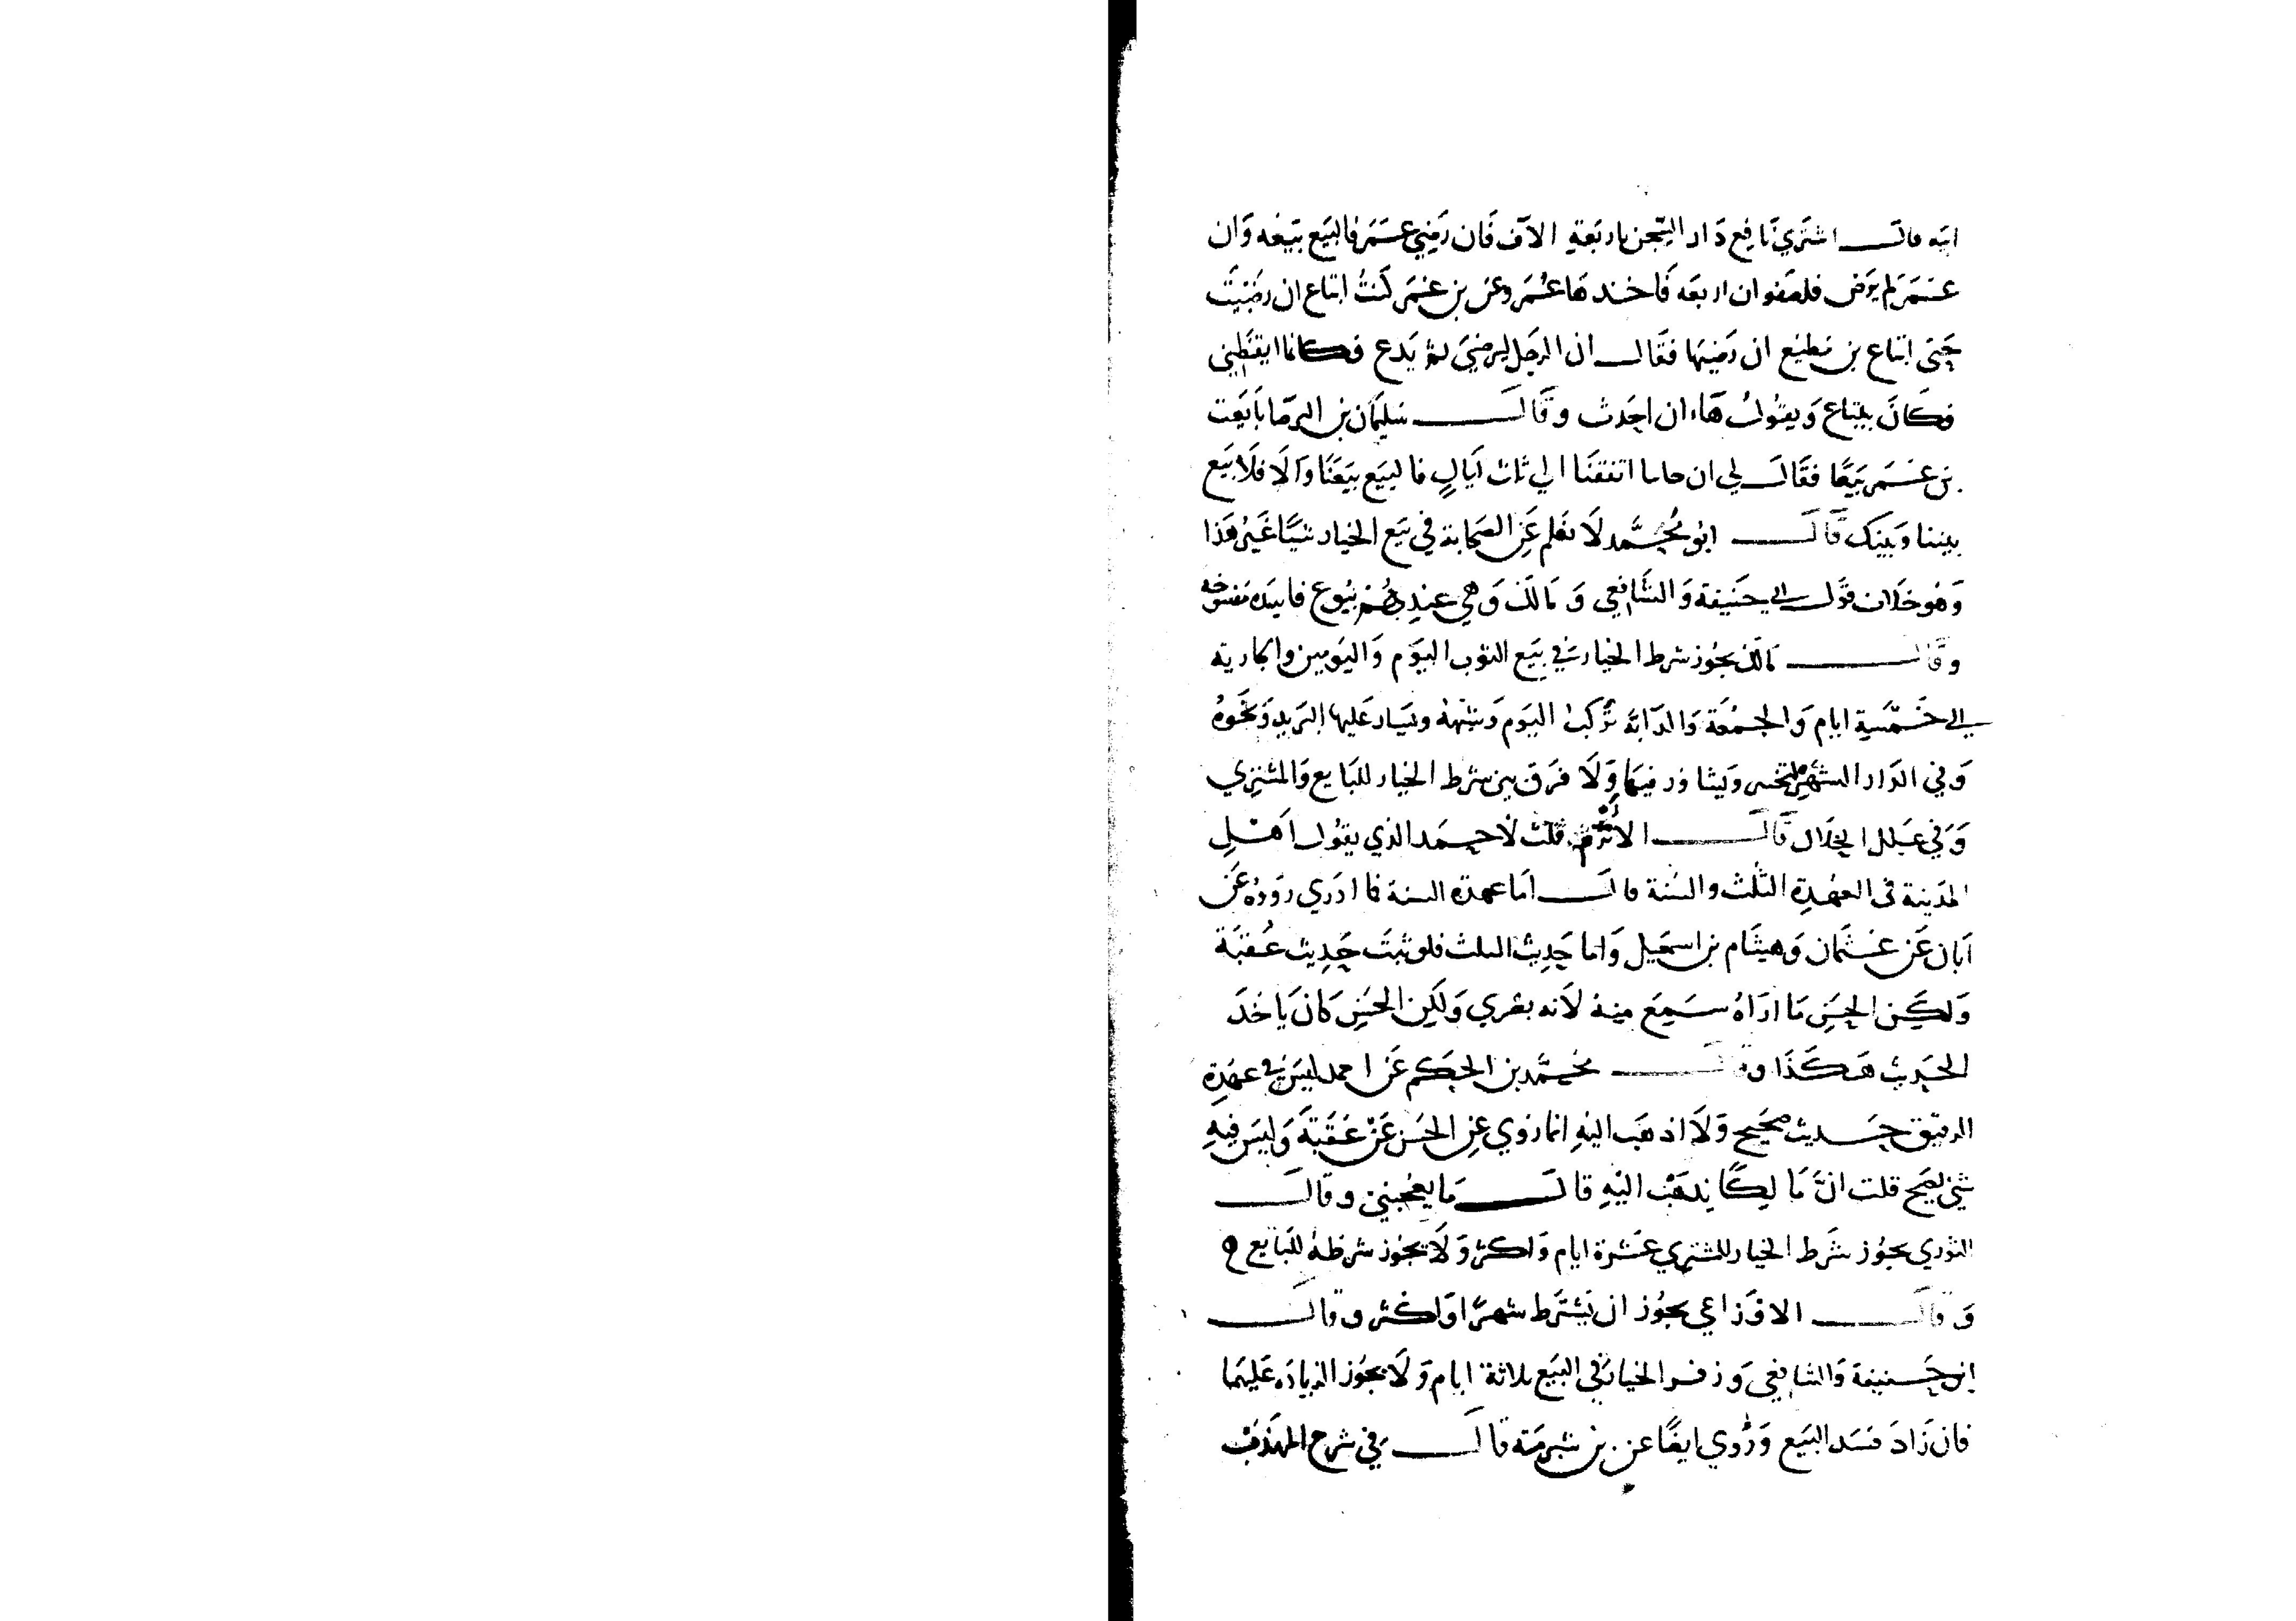 انه قال اشتري نافع دار السجن باربعة الاف فان رضي عمر فالبيع بيعه وان
عمر لم يرض فلصفوان اربعه فاخذها عمر وعن بن عمر كنت ابتاع ان رضيت
حتى ابتاع بن مطيع ان رضيها فقال ان الرجل ليرضي ثم يدع فكانما ايقظني
فكان يبتاع ويقول هاء ان اخذت وقال سليمان بن البرصا بايعت
بن عمر بيعا فقال لي ان جاتنا نفقتنا الي ثلث ليال فالبيع بيعنا والا فلا بيع
بيننا وبينك قال ابو محمد لا نعلم عن الصحابة في بيع الخيار شيا غير هذا
وهو خلاف قول ابي حنيفة والشافعي ومالك وهي عندهم بيوع فاسده مفسوخه
وقال مالك يجوز شرط الخيار في بيع الثوب اليوم واليومين والجارية
الي خمسة ايام والجمعة والدابة تركب اليوم وشبهه ويسار عليها البريد ونحوه
وفي الدار الشهر ويشاور فيها ولا فرق بين شرط الخيار للبايع والمشتري
وفي علل الخلال قال الاثرم قلت لاحمد الذي يقول اهل
المدينة في العهدة الثلث والسنة قال اما عهدة السنة فما ادري رووه عن
ابان عن عثمان وهشام بن اسمعيل واما حديث الثلث فلو ثبت حديث عقبة
ولكن الحسن ما اراه سمع منه لانه بصري ولكن الحسن كان ياخذ
الحديث هكذا وقال محمد بن الحكم عن احمد ليس في عهدة
الرقيق حديث صحيح ولا اذهب اليه انما روي عن الحسن عن عقبة وليس فيه
شي يصح قلت ان مالكا يذهب اليه قال ما يعجبني وقال
الثوري يجوز شرط الخيار للمشتري عشرة ايام واكثر ولا يجوز شرطه للبايع
وقال الاوزاعي يجوز ان يشترط شهرا او اكثر وقال
ابو حنيفة والشافعي وزفر الخيار في البيع ثلاثة ايام ولا يجوز الزياده عليها
فان زاد فسد البيع وروي ايضا عن بن شبرمة قال في شرح المهذب